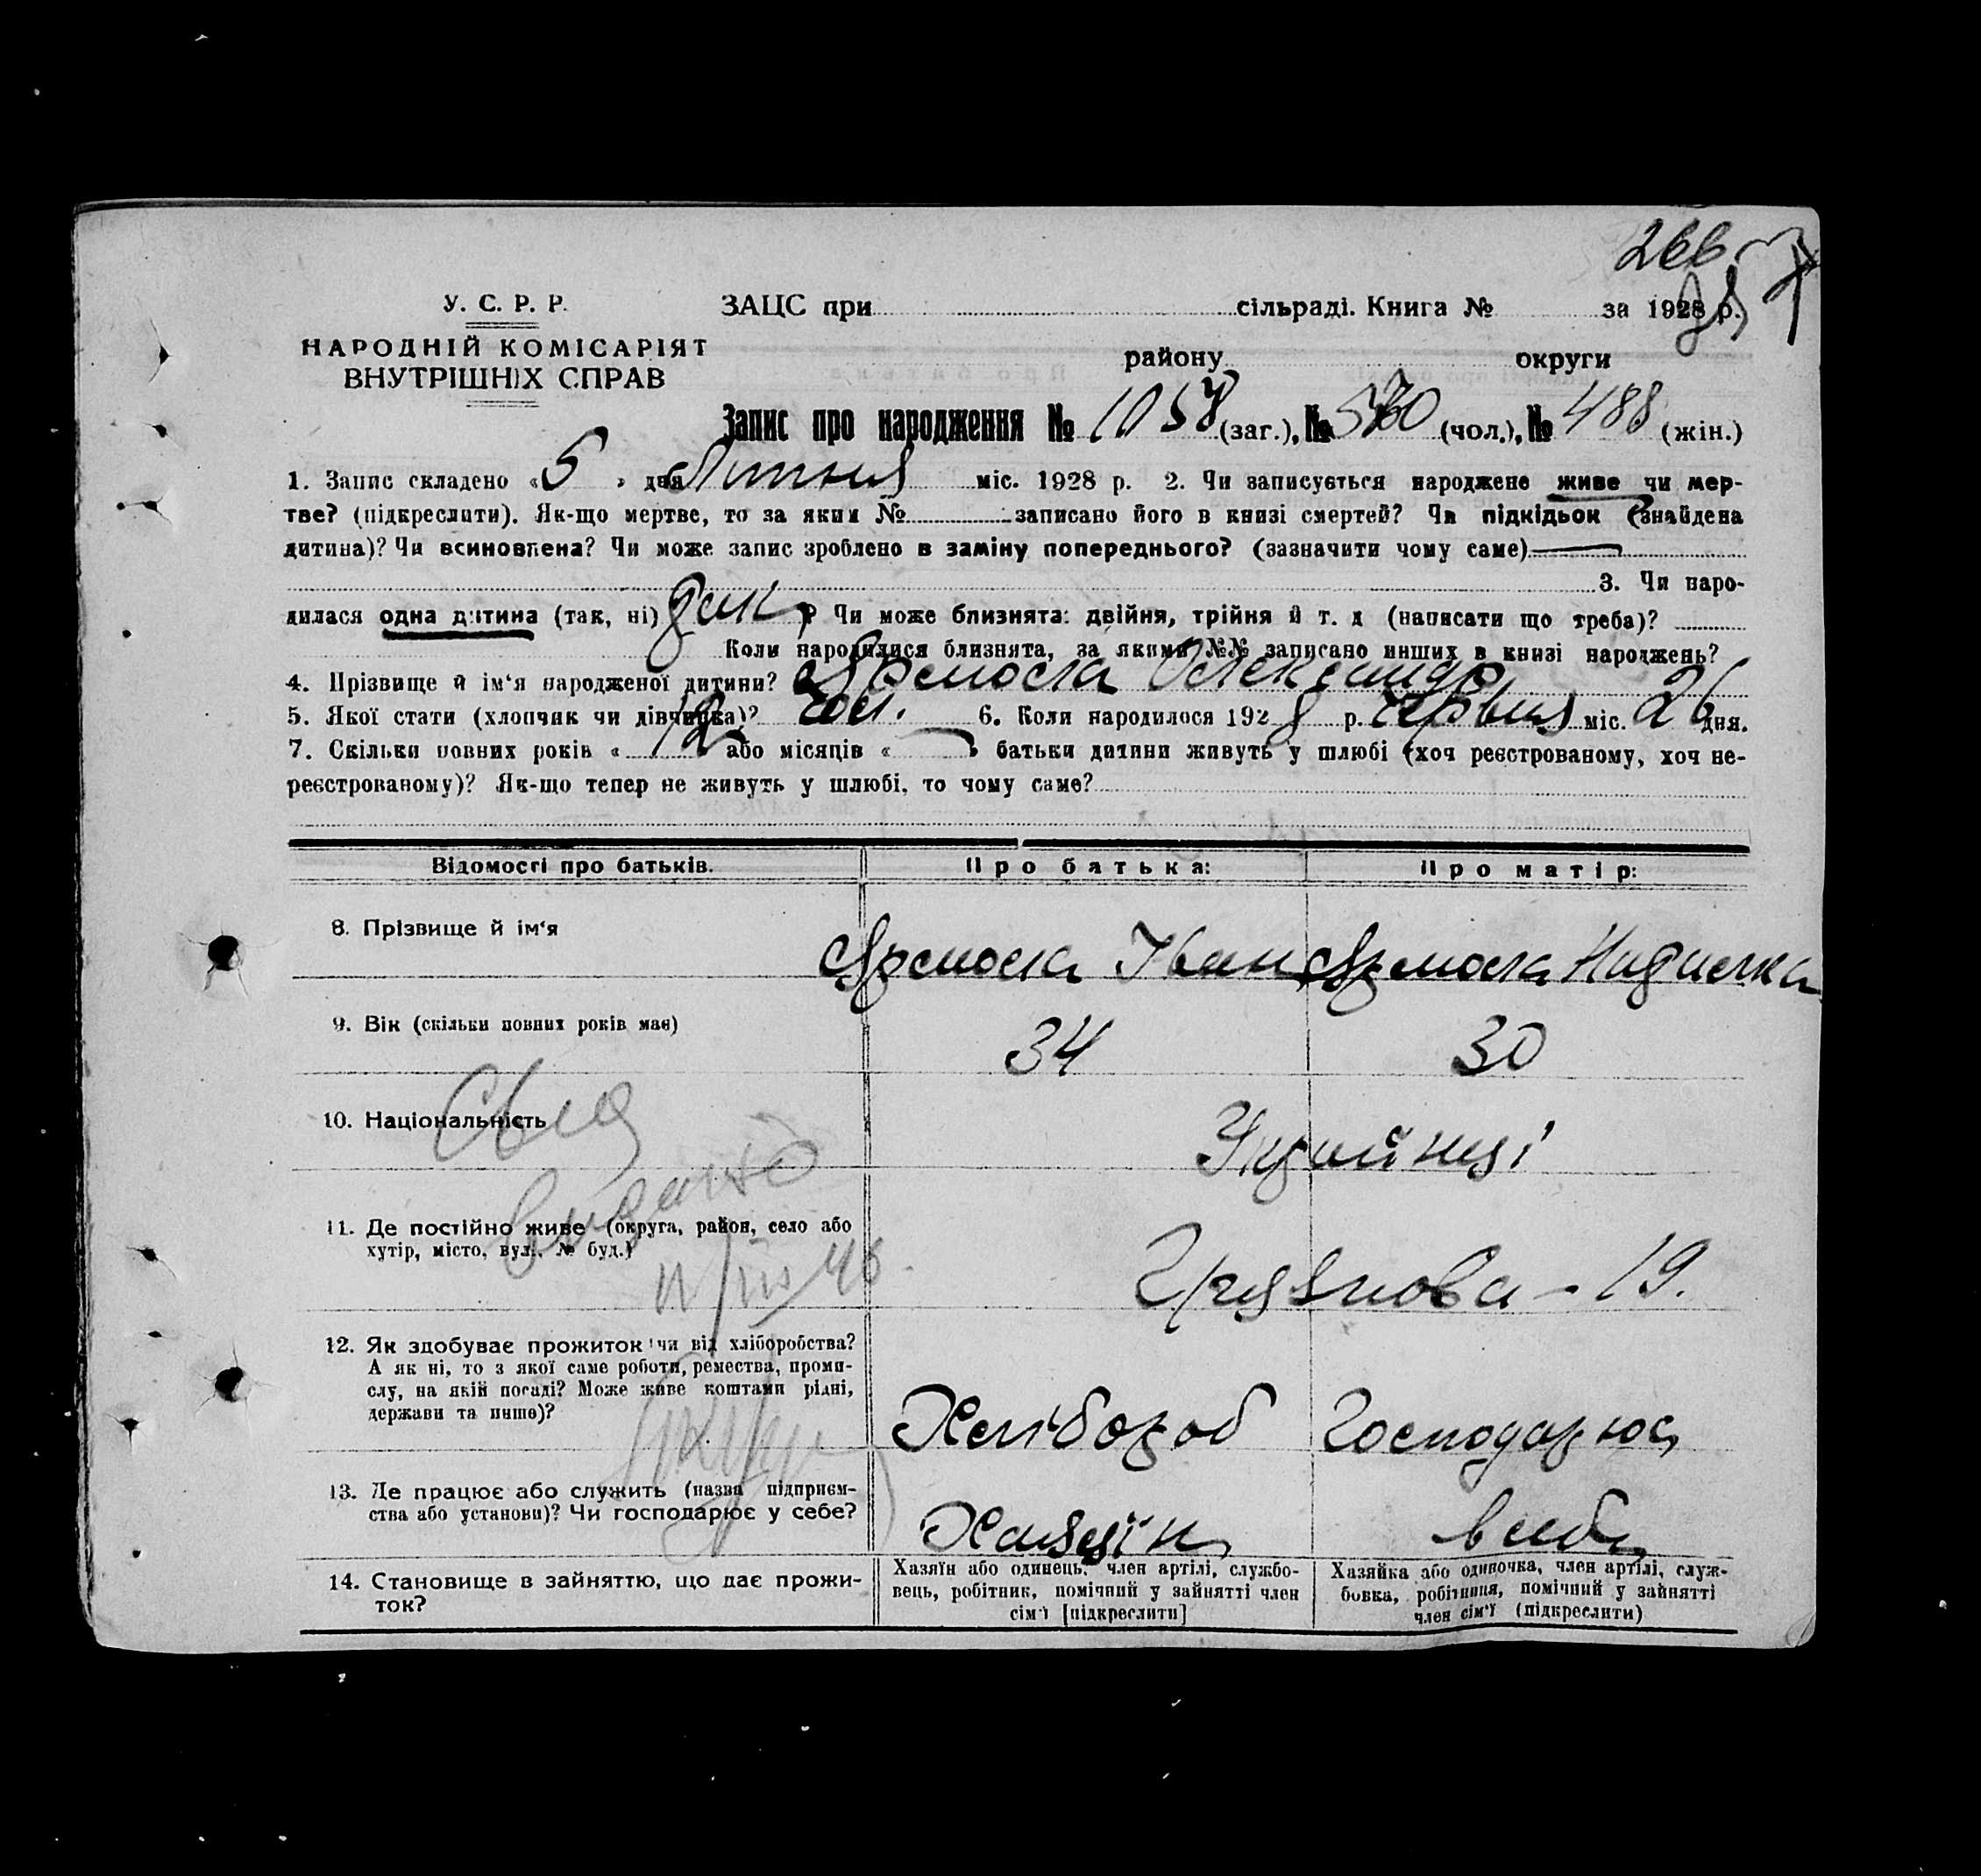 266
У. С. Р. Р.
ЗАЦС при сільраді. Книга № за 1928 р.
НАРОДНІЙ КОМІСАРІЯТ
ВНУТРІШНІХ СПРАВ
району округи
Запис про народження № 1058 (заг.), № 570 (чол.), № 488 (жін.)
1. Запис складено «5» дня Липня міс. 1928 р. 2. Чи записується народжене живе чи мер-
тве? (підкреслити). Як-що мертве, то за яким № записано його в книзі смертей? Чи підкідьок (знайдена
дитина)? Чи всиновлена? Чи може запис зроблено в заміну попереднього? (зазначити чому саме)
3. Чи наро-
дилася одна дитина (так, ні) так ? Чи може близнята: двійня, трійня й т. д (написати що треба)?
Коли народилися близнята, за якими №№ записано инших в книзі народжень?
4. Прізвище й ім‘я народженої дитини? Олександр
5. Якої стати (хлопчик чи дівчинка)? чол. 6. Коли народилося 1928 р. червня міс. 26 дня.
7. Скільки повних років «12» або місяців « » батьки дитини живуть у шлюбі (хоч реєстрованому, хоч не-
реєстрованому)? Як-що тепер не живуть у шлюбі, то чому саме?
Відомості про батьків. Про батька: Про матір:
8. Прізвище й ім‘я Іван
9. Вік (скільки повних років має) 34 30
10. Національність Українці
11. Де постійно живе (округа, район, село або
хутір, місто, вул., № буд.) 19.
12. Як здобуває прожиток чи від хліборобства?
А як ні, то з якої саме роботи, ремества, проми-
слу, на якій посаді? Може живе коштами рідні,
держави та инше)? Хлібороб Господарює
13. Де працює або служить (назва підприєм-
ства або установи)? Чи господарює у себе? Хазяїн в себе
14. Становище в зайняттю, що дає прожи-
ток?
Хазяїн або одинець, член артілі, службо-
вець, робітник, помічний у зайнятті член
сім‘ї [підкреслити]
Хазяйка або одиночка, член артілі, служ-
бовка, робітниця, помічний у зайнятті
член сім‘ї (підкреслити)